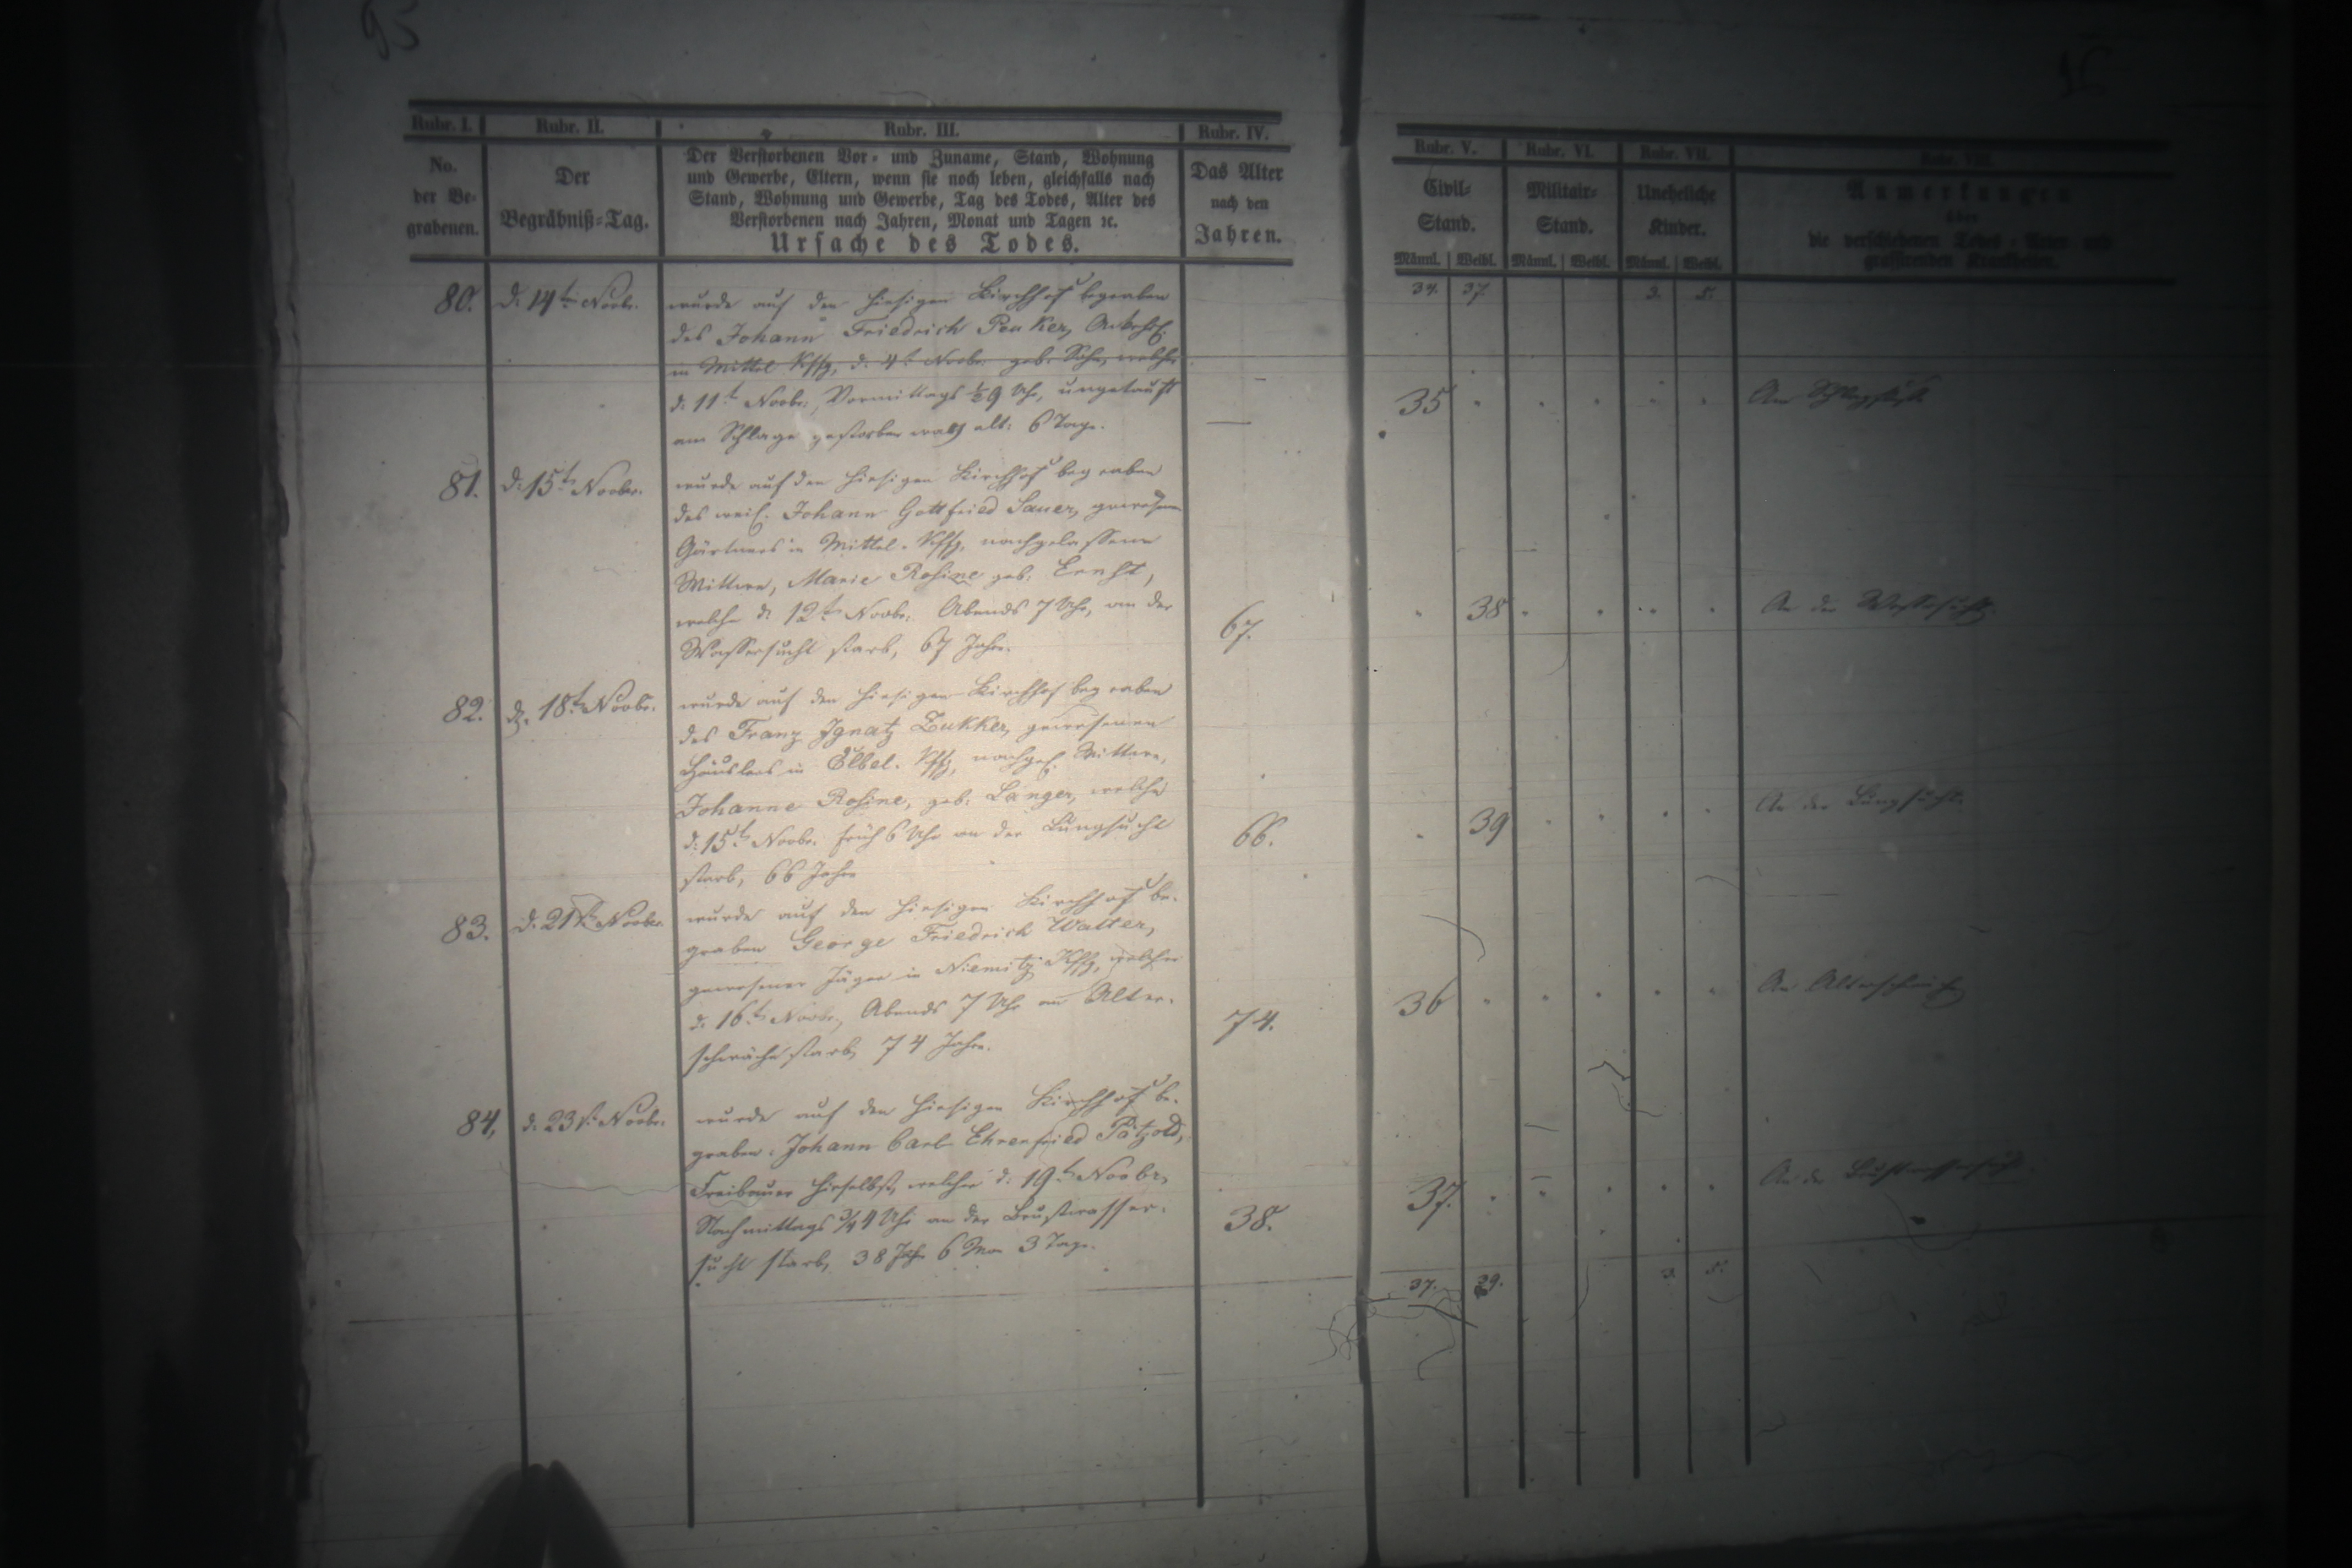 Rubr. I.
Rubr. II.
Rubr. III.
Rubr. IV.
No.
der Be-
grabenen.
Der
Begräbniß-Tag.
Der Verstorbenen Vor- und Zuname, Stand, Wohnung
und Gewerbe, Eltern, wenn sie noch leben, gleichfalls nach
Stand, Wohnung und Gewerbe, Tag des Todes, Alter des
Verstorbenen nach Jahren, Monat und Tagen ꝛc.
Ursache des Todes.
Das Alter
nach den
Jahren.
80.
d. 14t Novbr.
wurde auf den hiesigen Kirchhof begraben
des Johann Friedrich Peuker,
in Mittel Kffg, d. 4t Novbr. geb. Sohn, welcher
d. 11t Novbr., Vormittags ½9 Uhr, ungetauft
am Schlage gestorben war, alt: 6 Tage.
81.
d. 15t Novbr.
wurde auf den hiesigen Kirchhof begraben
des weil. Johann Gottfried Sauer, gewesenen
Gärtners in Mittel-Kffg, nachgelassene
Wittwe, Marie Rosine geb. Ernst,
welche d. 12t Novbr. Abends 7 Uhr, an der
Wassersucht starb, 67 Jahre.
67.
82.
d. 18t Novbr.
wurde auf den hiesigen Kirchhof begraben
des Franz Ignatz Zukker, gewesenen
Häuslers in Elbel-Kffg, nachgel. Wittwe,
Johanne Rosine, geb. Langer, welche
d. 15t Novbr. früh 6 Uhr an der Lungsucht
starb, 66 Jahre
66.
83.
d. 21st Novbr.
wurde auf den hiesigen Kirchhof be-
graben George Friedrich Walter,
gewesener Jäger in Niemitz Kffg, welcher
d. 16t Novbr., Abends 7 Uhr an Alter-
schwäche starb, 74 Jahre.
74.
84.
d. 23st Novbr.
wurde auf den hiesigen Kirchhof be-
graben: Johann Carl Ehrenfried Pätzold,
Freibauer hieselbst, welcher d. 19t Novbr.
Nachmittags ¾4 Uhr an der Brustwasser-
sucht starb, 38 Jahr 6 Mon 3 Tage.
38.
Rubr. V.
Rubr. VI.
Rubr. VII.
Rubr. VIII.
Civil-
Stand.
Militair-
Stand.
Uneheliche
Kinder.
Anmerkungen
über
die verschiedenen Todes-Arten und
grassirenden Krankheiten.
Männl.
Weibl.
Männl.
Weibl.
Männl.
Weibl.
34.
37.
3.
5.
35
Am Schlagfluß
38
An der Wassersucht.
39
An der Lungsucht.
36
An Alterschwäche
37.
An der Brustwassersucht.
37.
39.
3.
5.